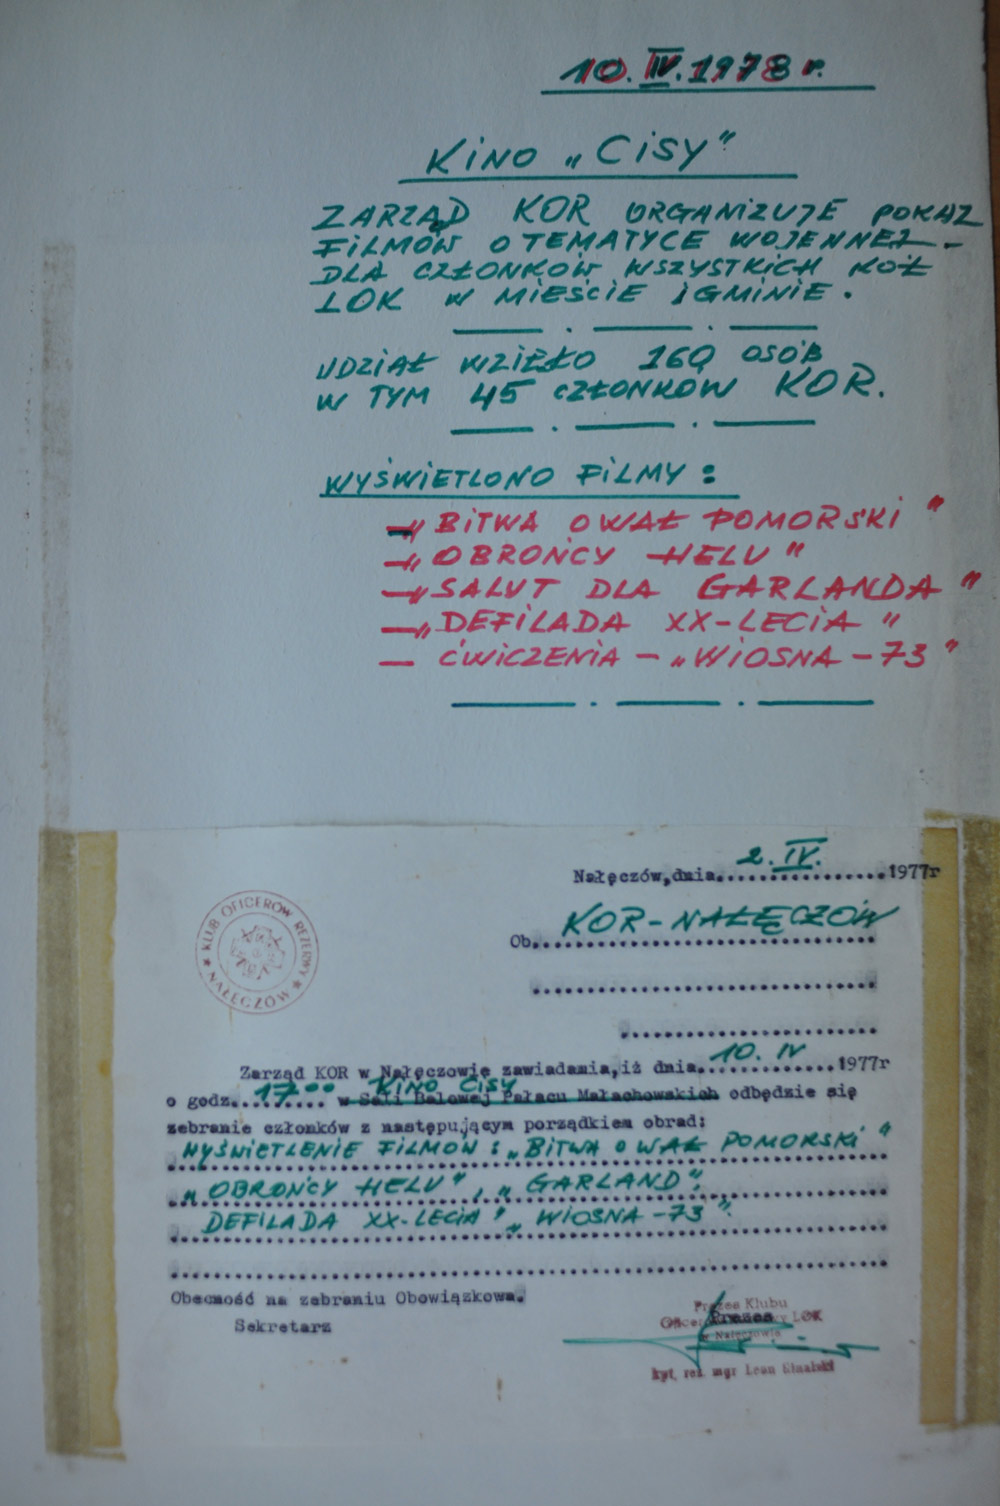 10.IV.1978 r.
KINO „CISY"
ZARZĄD KOR ORGANIZUJE POKAZ
FILMÓW O TEMATYCE WOJENNEJ -
DLA CZŁONKÓW WSZYSTKICH KÓŁ
LOK W MIEŚCIE I GMINIE.
UDZIAŁ WZIĘŁO 160 OSÓB
W TYM 45 CZŁONKÓW KOR.
WYŚWIETLONO FILMY:
- „BITWA O WAŁ POMORSKI"
- „OBROŃCY HELU"
- „SALUT DLA GARLANDA"
- „DEFILADA XX-LECIA"
- ĆWICZENIA - „WIOSNA - 73"
Nałęczów,dnia 2.IV. 1977r
KLUB OFICERÓW REZERWY
★ NAŁĘCZÓW ★
Ob. KOR-NAŁĘCZÓW
Zarząd KOR w Nałęczowie zawiadamia,iż dnia 10.IV 1977r
o godz. 17⁰⁰ KINO CISY w Sali Balowej Pałacu Małachowskich odbędzie się
zebranie członków z następującym porządkiem obrad:
WYŚWIETLENIE FILMÓW: „BITWA O WAŁ POMORSKI"
„OBROŃCY HELU", „GARLAND",
DEFILADA XX-LECIA" „WIOSNA -73".
Obecność na zebraniu Obowiązkowa.
Sekretarz
Prezes Klubu
Prezes
LOK
w Nałęczowie
kpt. rez. mgr